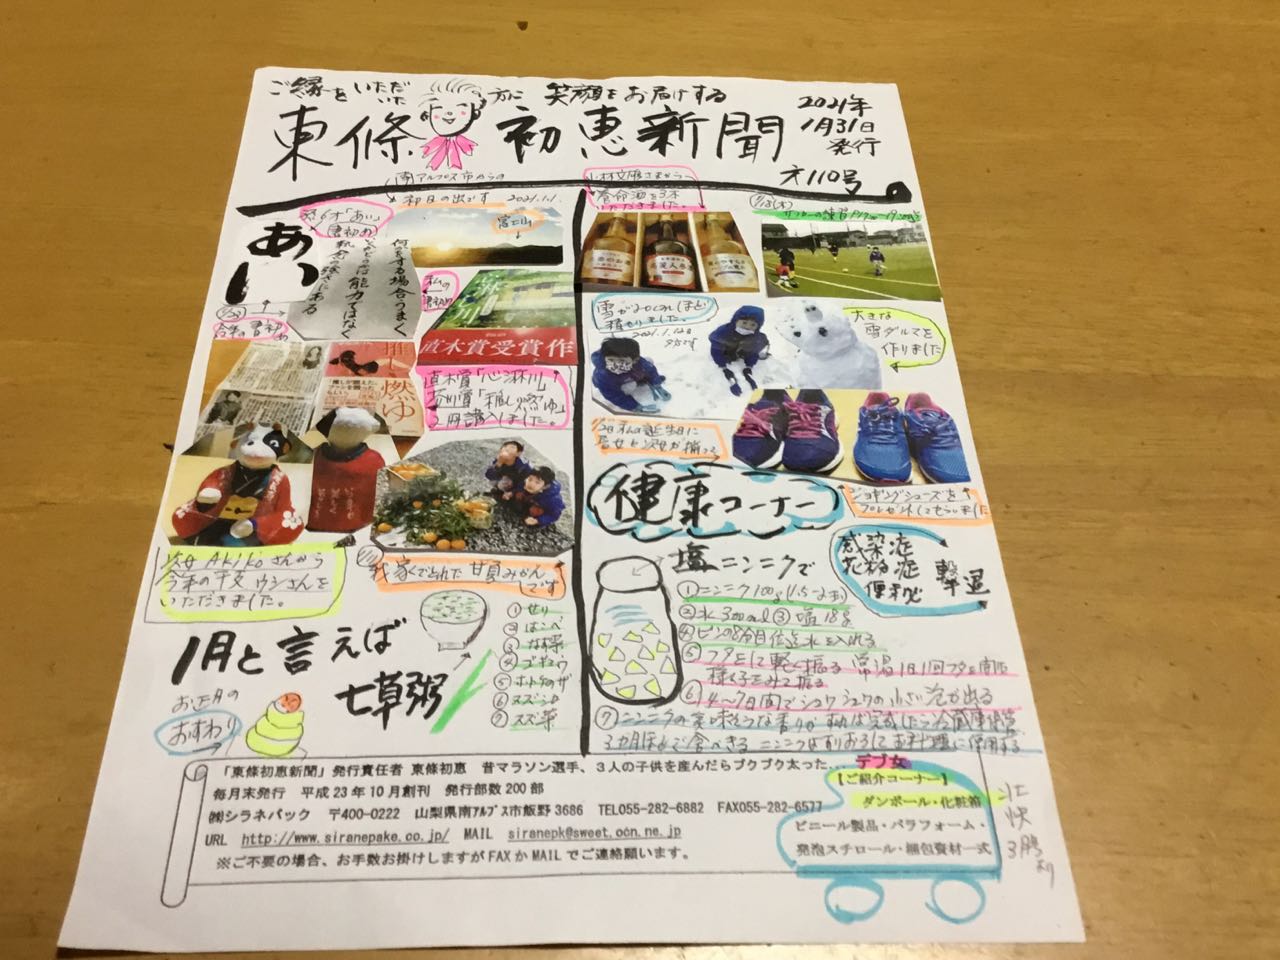 ご縁をいただいた方に 笑顔をお届けする
東條初恵新聞
2021年
1月31日
発行
110号
南アルプス市からの
初日の出です 2021.1.1.
富士山
あい
書初め
何をする場合うまく
いくかどうかは能力ではなく
執念の強さにある
今年の書初め
私の
直木賞受賞作
推し燃ゆ
直木賞「心淋川」
芥川賞「推し燃ゆ」
2冊購入しました。
次女 AKiKoさんから
今年の干支 ウシさんを
いただきました。
我家でとれた甘夏みかん
です
養命酒を3本
いただきました。
高麗人参酒
雪が20cmほど
積りました。
2021.1.12日
大きな
雪ダルマを
作りました
私の誕生日に
長女と次女が揃って
ジョギングシューズを
プレゼントしてもらいました
健康コーナー
感染症
花粉症
便秘
撃退
塩ニンニクで
①ニンニク100g
②水300ml ③塩18g
④ビンの8分目位迄水を入れる
⑤フタをして軽く振る 常温1日1回フタを開け
様子をみて振る
⑥4〜7日間でシュワシュワの小さい泡が出る
⑦ニンニクの美味そうな香りがすれば完成したら冷蔵庫保管
3カ月ほどで食べきる ニンニクはすりおろしてお料理に使用する
1月と言えば
七草粥
①せり
②はこべ
③なずな
④ゴギョウ
⑤ホトケノザ
⑥スズシロ
⑦スズナ
お正月の
おすわり
「東條初恵新聞」発行責任者 東條初恵 昔マラソン選手、3人の子供を産んだらブクブク太った... デブ女
毎月末発行 平成23年10月創刊 発行部数200部
㈱シラネパック 〒400-0222 山梨県南アルプス市飯野3686 TEL055-282-6882 FAX055-282-6577
URL http://www.siranepake.co.jp/ MAIL siranepk@sweet.ocn.ne.jp
※ご不要の場合、お手数お掛けしますがFAXかMAILでご連絡願います。
【ご紹介コーナー】
ダンボール・化粧箱
ビニール製品・パラフォーム・
発泡スチロール・梱包資材一式